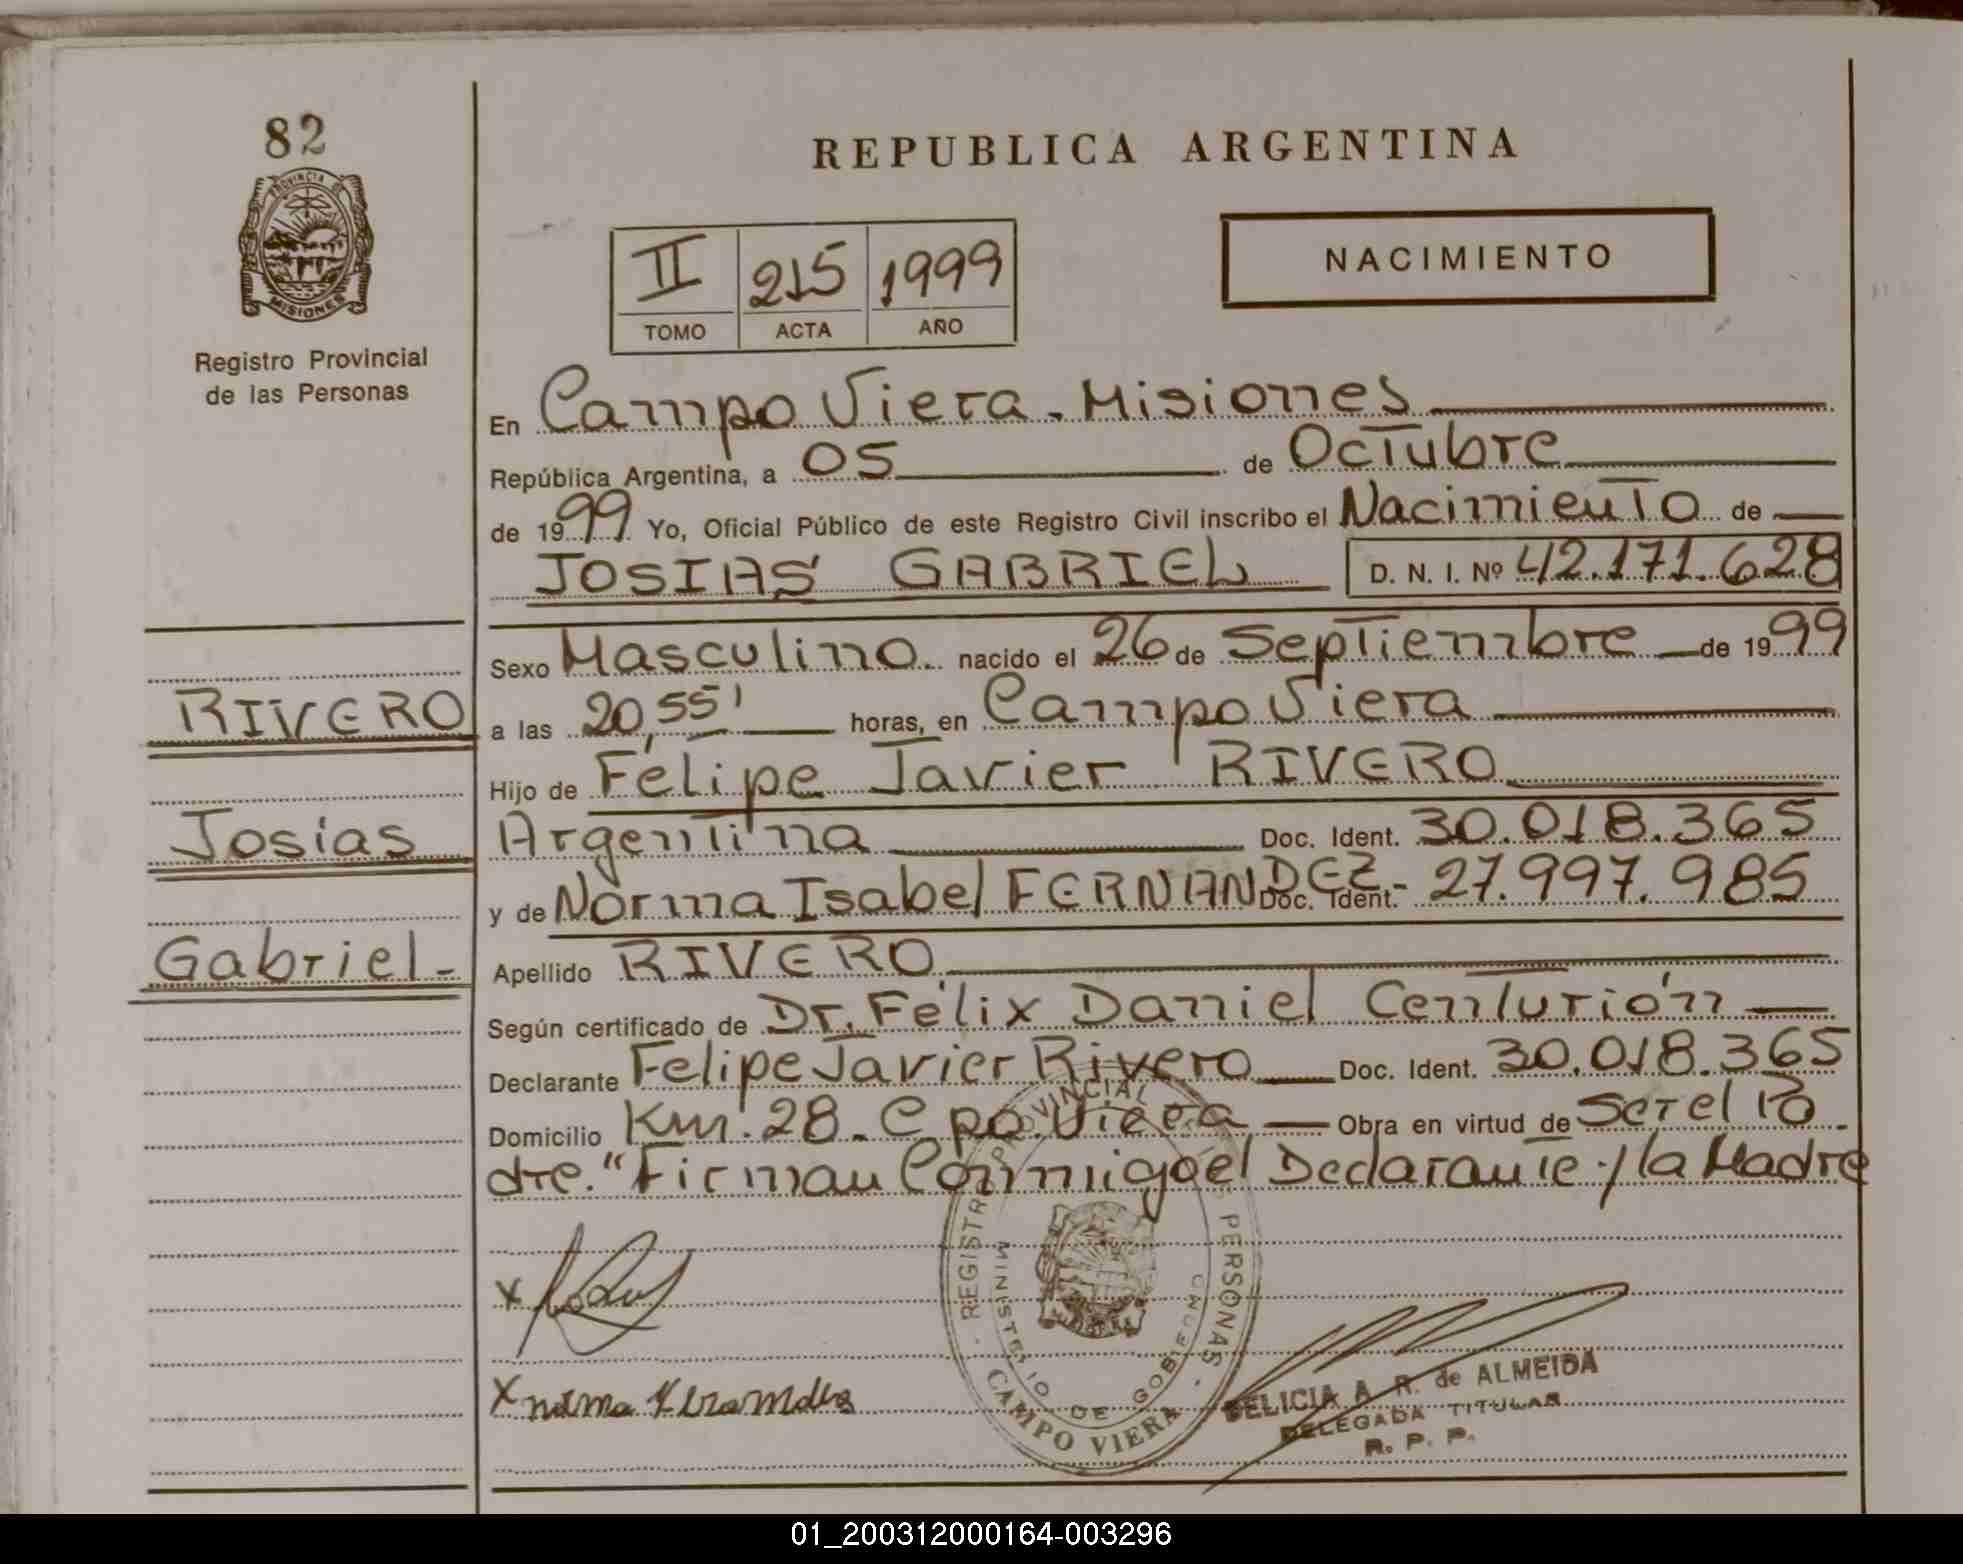 82
REPUBLICA ARGENTINA
PROVINCIA DE
MISIONES
Registro Provincial
de las Personas
II 215 1999
TOMO ACTA AÑO
NACIMIENTO
En Campo Viera - Misiones
República Argentina, a 05 de Octubre
de 1999 Yo, Oficial Público de este Registro Civil inscribo el Nacimiento de
JOSIAS GABRIEL D. N. I. Nº 42.171.628
Sexo Masculino nacido el 26 de Septiembre de 1999
RIVERO
a las 20,55' horas, en Campo Viera
Hijo de Felipe Javier RIVERO
Josías
Argentina Doc. Ident. 30.018.365
y de Norma Isabel FERNANDEZ- Doc. Ident. 27.997.985
Gabriel-
Apellido RIVERO
Según certificado de Dr. Félix Daniel Centurión
Declarante Felipe Javier Rivero Doc. Ident. 30.018.365
Domicilio Km. 28 - Cpo. Viera Obra en virtud de Ser el Pa
dre." Firman Conmigo el Declarante y la Madre
REGISTRO PROVINCIAL DE LAS PERSONAS
MINISTERIO DE GOBIERNO
CAMPO VIERA
X
X norma Fernandes
FELICIA A. R. de ALMEIDA
DELEGADA TITULAR
R. P. P.
01_200312000164-003296